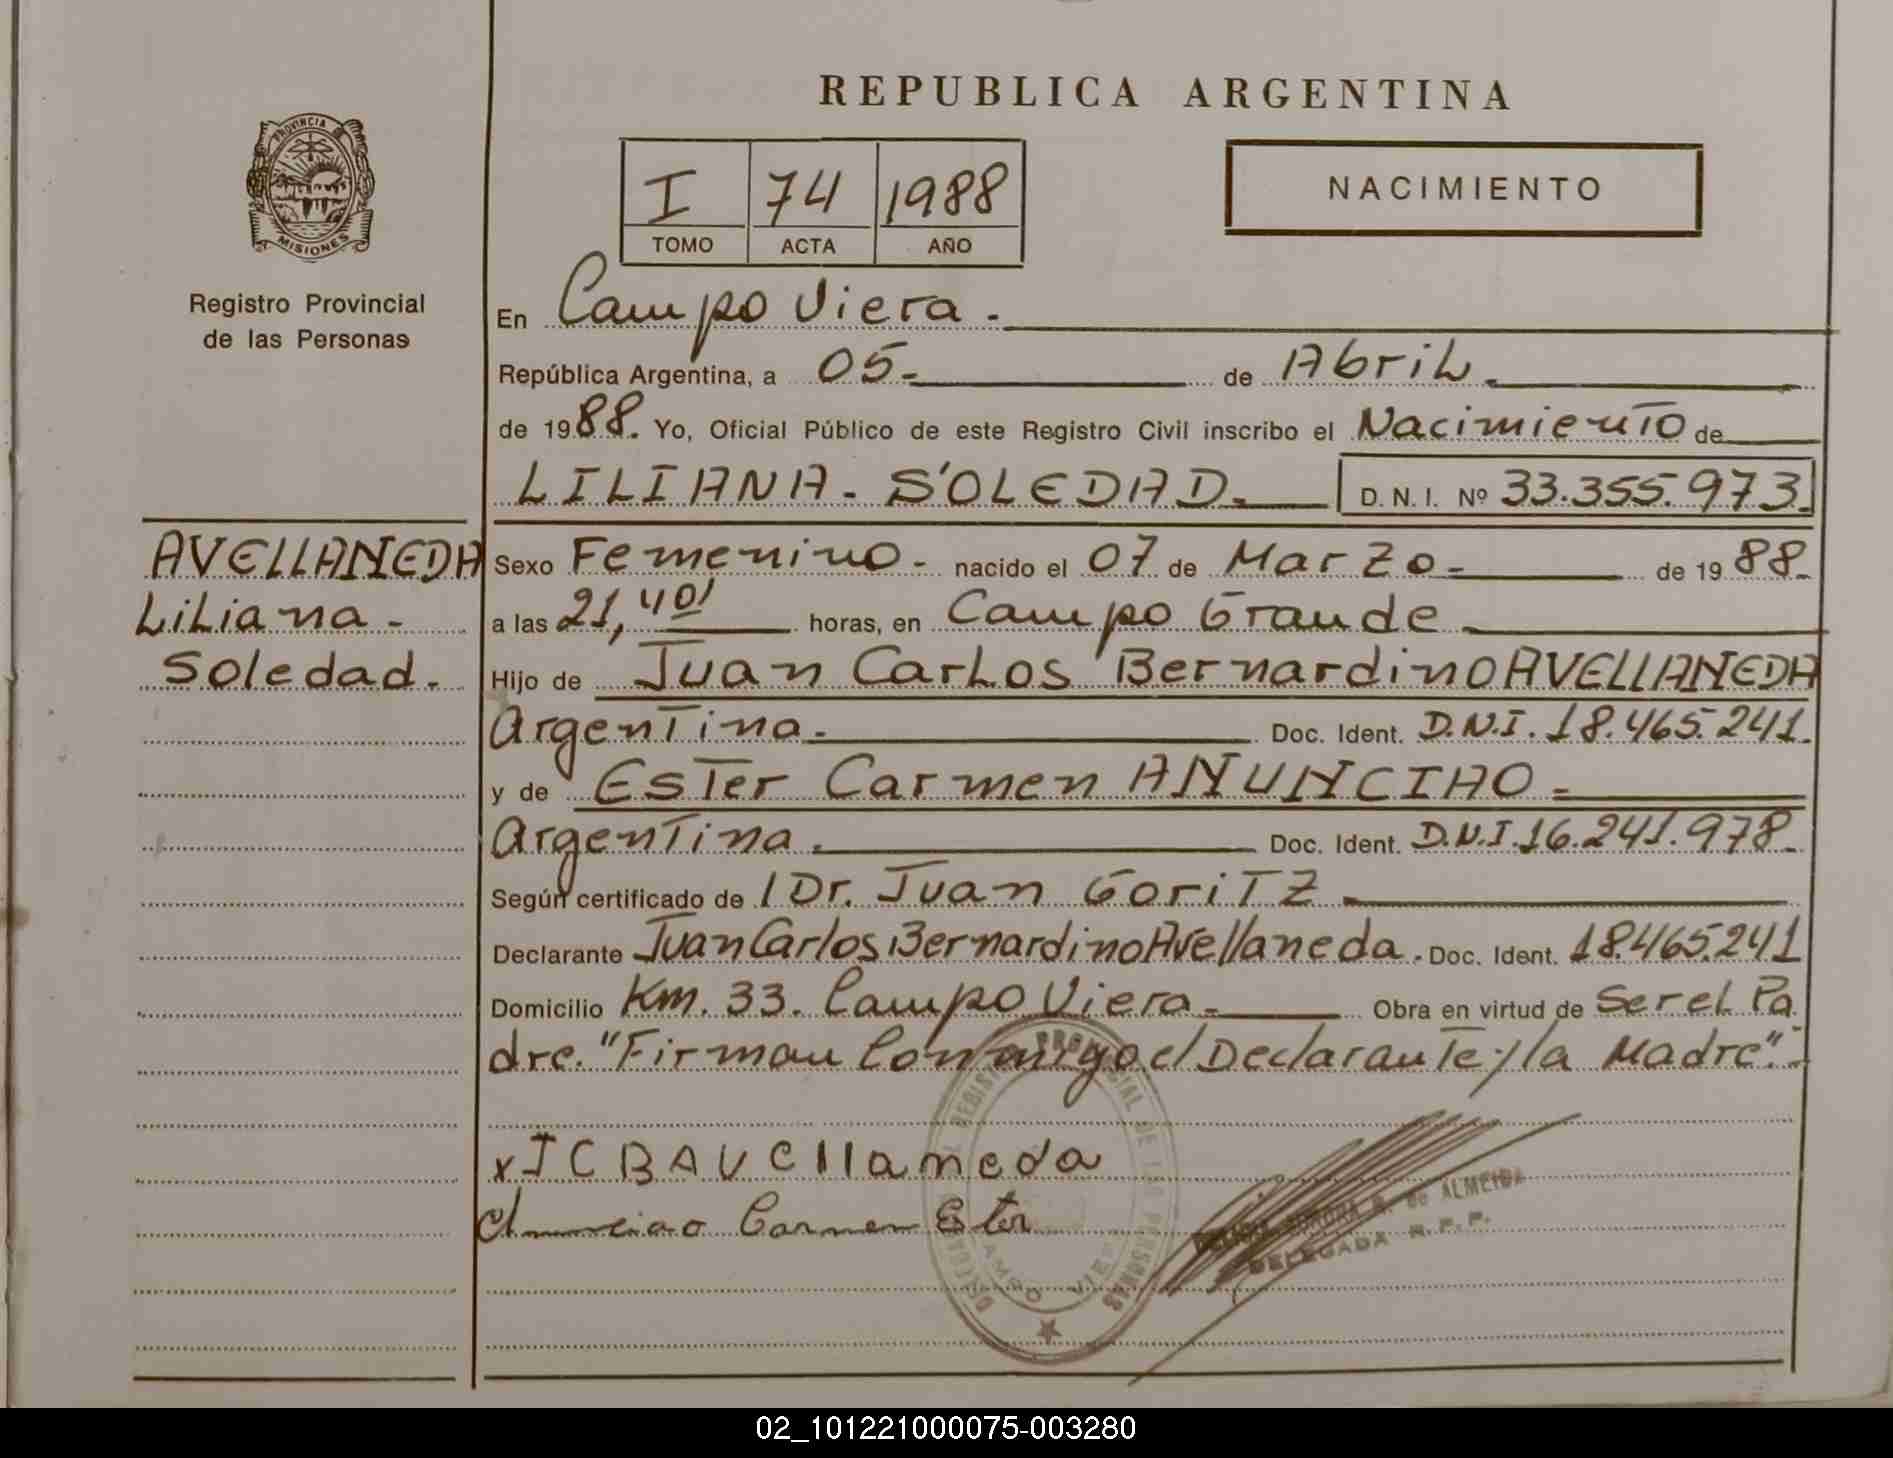 REPUBLICA ARGENTINA
PROVINCIA DE
MISIONES
Registro Provincial
de las Personas
I 74 1988
TOMO ACTA AÑO
NACIMIENTO
En Campo Viera.
República Argentina, a 05. de Abril.
de 1988. Yo, Oficial Público de este Registro Civil inscribo el Nacimiento de
LILIANA - SOLEDAD. D. N. I. Nº 33.355.973.
AVELLANEDA
Liliana -
Soledad.
Sexo Femenino - nacido el 07 de Marzo. de 1988.
a las 21,40' horas, en Campo Grande
Hijo de Juan Carlos Bernardino AVELLANEDA
Argentina. Doc. Ident. D.N.I. 18.465.241.
y de Ester Carmen ANUNCIAO =
Argentina. Doc. Ident. D.N.I. 16.241.978.
Según certificado de l Dr. Juan Goritz
Declarante Juan Carlos Bernardino Avellaneda. Doc. Ident. 18.465.241
Domicilio Km. 33. Campo Viera. Obra en virtud de Ser el Pa
dre. "Firman Conmigo el Declarante y la Madre".-
x J C B AVellaneda
Anunciao Carmen Ester
REGISTRO PROVINCIAL DE LAS PERSONAS
CAMPO VIERA
AURORA R. de ALMEIDA
DELEGADA R.P.P.
02_101221000075-003280